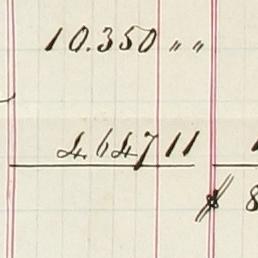 10.350 〃 〃
4647 11
$ 8